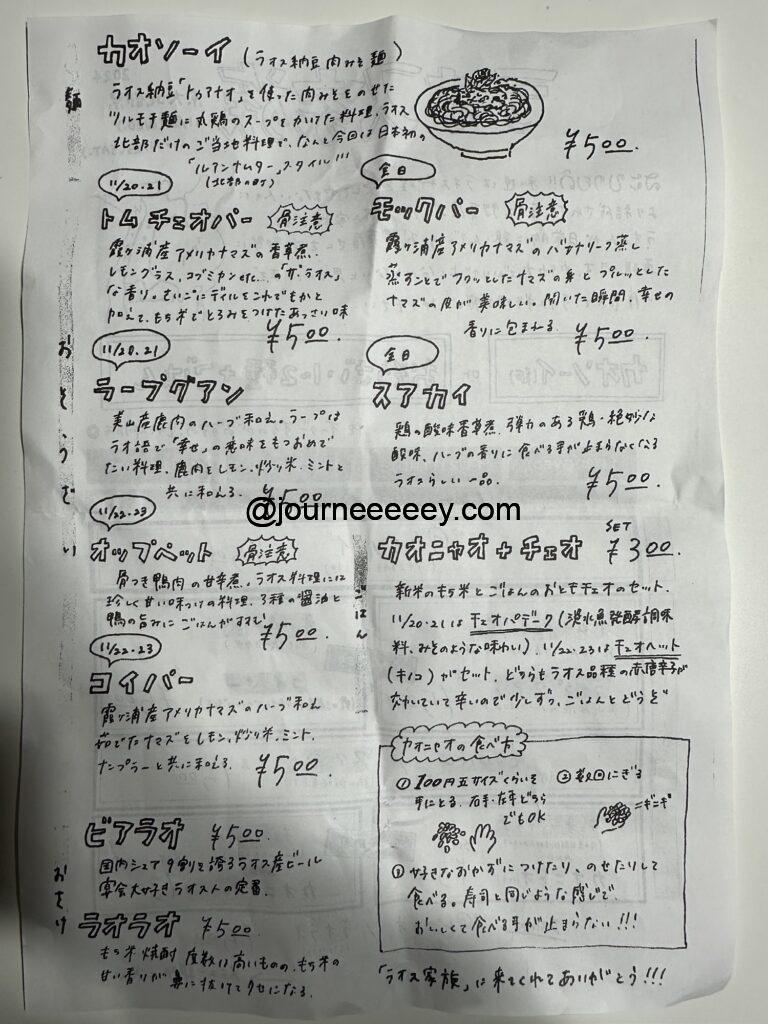 麺
カオソーイ (ラオス納豆肉みそ麺)
ラオス納豆「トゥアナオ」を使った肉みそをのせた
ツルモチ麺に丸鶏のスープをかけた料理。ラオス
北部だけのご当地料理で、なんと今回は日本初の
「ルアンナムター」スタイル!!!
(北部の町)
¥500.
おそうざい
11/20.21
トムチェオパー
骨注意
霞ヶ浦産アメリカナマズの香草煮.
レモングラス、コブミカンetc...の「ザ・ラオス」
な香り。さいごにディルをこれでもかと
加えて、もち米でとろみをつけたあっさり味
¥500
全日
モックパー
骨注意
霞ヶ浦産アメリカナマズのバナナリーフ蒸し
蒸すことでフワッとしたナマズの身とプルッとした
ナマズの皮が美味しい。開いた瞬間、幸せの
香りに包まれる.
¥500.
11/20.21
ラープグアン
美山産鹿肉のハーブ和え。ラープは
ラオ語で「幸せ」の意味をもつおめで
たい料理。鹿肉をレモン、炒り米、ミントと
共に和える.
¥500
全日
スアカイ
鶏の酸味香草煮. 弾力のある鶏・絶妙な
酸味、ハーブの香りに食べる手が止まらなくなる
ラオスらしい一品.
¥500.
@journeeeeey.com
11/22.23
オップペット
骨注意
骨つき鴨肉の甘辛煮。ラオス料理には
珍しく甘い味つけの料理。3種の醤油と
鴨の旨みにごはんがすすむ!
¥500.
11/22.23
コイパー
霞ヶ浦産アメリカナマズのハーブ和え
茹でたナマズをレモン、炒り米、ミント、
ナンプラーと共に和える.
¥500.
ごはん
カオニャオ+チェオ SET ¥300.
新米のもち米とごはんのおともチェオのセット.
11/20.21は チェオパデーク (淡水魚発酵調味
料、みそのような味わい)、11/22.23はチェオヘット
(キノコ)がセット。どちらもラオス品種の赤唐辛子が
効いていて辛いので少しずつ、ごはんとどうぞ
カオニャオの食べ方
① 100円玉サイズくらいを
手にとる. 右手・左手どちら
でもOK
② 数回にぎる
=ギニギ
③ 好きなおかずにつけたり、のせたりして
食べる。寿司と同じような感じで.
おいしくて食べる手が止まらない!!!
おさけ
ビアラオ ¥500.
国内シェア9割を誇るラオス産ビール
宴会大好きラオストの定番.
ラオラオ ¥500.
もち米焼酎 度数は高いものの、もち米の
甘い香りが鼻に抜けてクセになる.
「ラオス家族」に来てくれてありがとう!!!